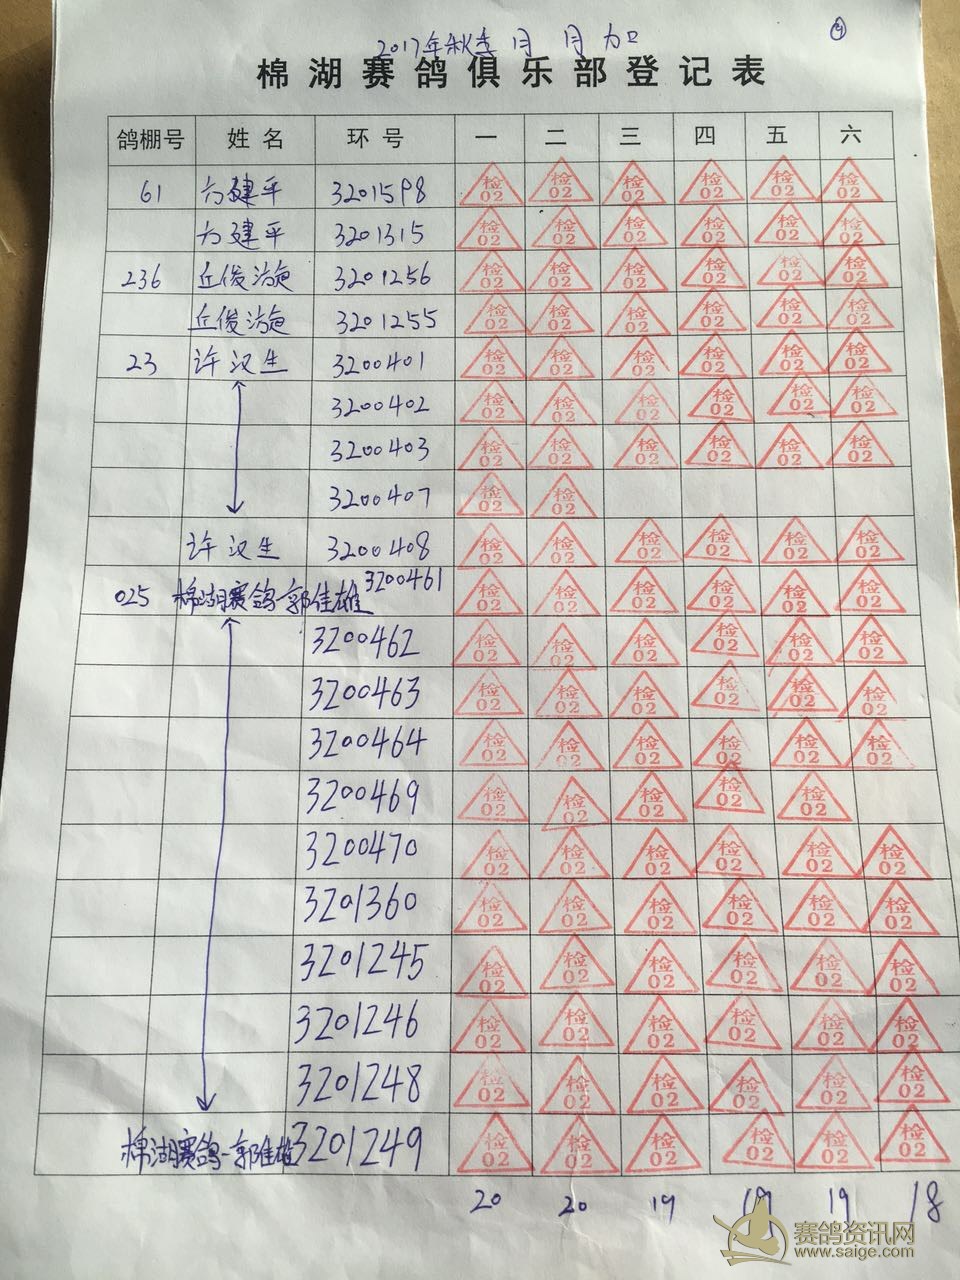 ④
2017年秋季 月月加
棉湖赛鸽俱乐部登记表
鸽棚号 姓名 环号 一 二 三 四 五 六
61 方建平 3201598 检02 检02 检02 检02 检02 检02
方建平 3201315 检02 检02 检02 检02 检02 检02
236 丘俊鸿 3201256 检02 检02 检02 检02 检02 检02
丘俊 3201255 检02 检02 检02 检02 检02 检02
23 许汉生 3200401 检02 检02 检02 检02 检02 检02
3200402 检02 检02 检02 检02 检02 检02
3200403 检02 检02 检02 检02 检02 检02
3200407 检02 检02
许汉生 3200408 检02 检02 检02 检02 检02 检02
025 棉湖赛鸽-郭佳雄 3200461 检02 检02 检02 检02 检02 检02
3200462 检02 检02 检02 检02 检02 检02
3200463 检02 检02 检02 检02 检02 检02
3200464 检02 检02 检02 检02 检02 检02
3200469 检02 检02 检02 检02 检02
3200470 检02 检02 检02 检02 检02 检02
3201360 检02 检02 检02 检02 检02 检02
3201245 检02 检02 检02 检02 检02 检02
3201246 检02 检02 检02 检02 检02 检02
3201248 检02 检02 检02 检02 检02 检02
棉湖赛鸽-郭佳雄 3201249 检02 检02 检02 检02 检02 检02
20 20 19 19 19 18
赛鸽资讯网
www.saige.com